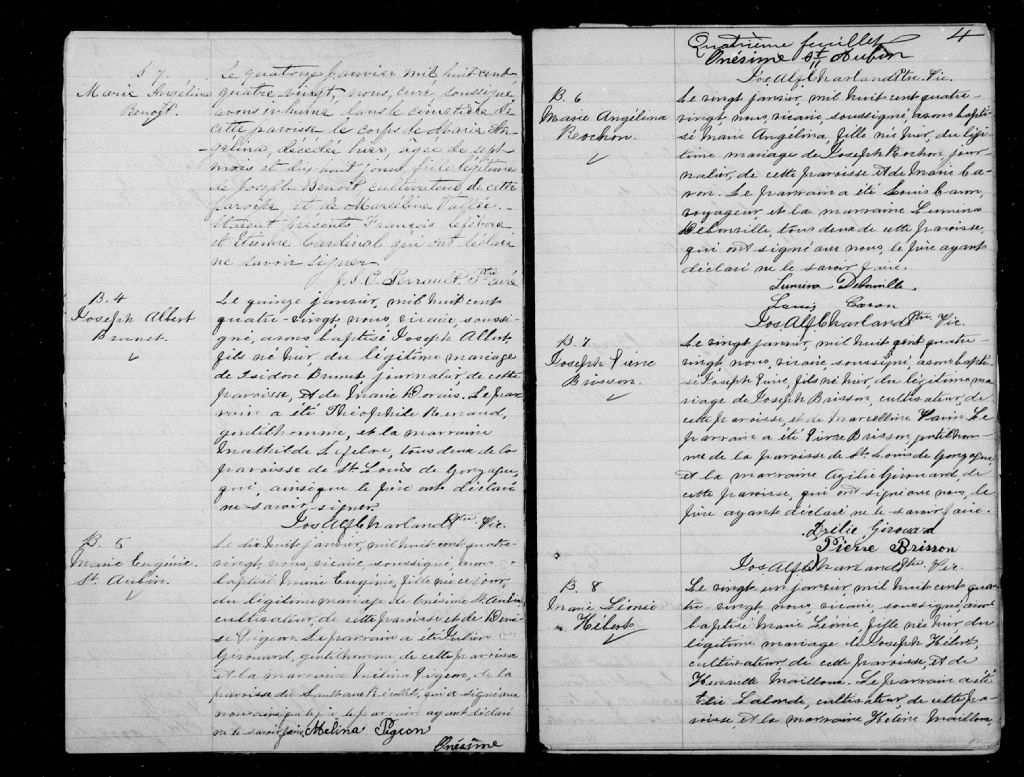 S 7.
Marie Angelina
Benoit.
Le quatorze janvier mil huit cent
quatre vingt, nous, curé soussigné
avons inhumé dans le cimetière de
cette paroisse le corps de Marie An-
gelina, décedée hier, agée de sept
mois et dix huit jours, fille légitime
de Joseph Benoit cultivateur de cette
paroisse et de Marceline
étaient présents François Lefebvre
et Etienne Cardinal qui ont déclaré
ne savoir signer
J. S. O. Perrault Ptre Curé
B. 4
Joseph Albert
Brunet.
Le quinze janvier, mil huit cent
quatre-vingt, nous, vicaire, soussi-
gné, avons baptisé Joseph Albert,
fils né hier, du légitime mariage
de Isidore Brunet, journalier, de cette
paroisse, et de Marie Dorais. Le par-
rain a été Théophile
gentilhomme, et la marraine
Mathilde Lefebre, tous deux de la
paroisse de St. Louis de Gonzague,
qui, ainsi que le père ont déclaré
ne savoir signer.
Jos Alf Charland Ptre Vic.
B. 5
Marie Eugénie
St. Aubin.
Le dix huit janvier, mil huit cent quatre-
vingt, nous, vicaire, soussigné, avons
baptisé Marie Eugénie, fille née ce jour,
du légitime mariage de Onésime St. Aubin,
cultivateur, de cette paroisse et de Deni-
se Pigeon. Le parrain a été Julien
Girouard, gentilhomme de cette paroisse
et la marraine Mélina Pigeon, de la
paroisse du qui a signé avec
nous ainsi que le père, le parrain ayant déclaré
ne le savoir faire Melina Pigeon
Onésime
4
Quatrième feuillet
Onésime St Aubin
Jos Alf Charland Ptre. Vic.
B. 6
Marie Angélina
Rochon.
Le vingt janvier, mil huit cent quatre-
vingt, nous, vicaire, soussigné, avons bapti-
sé Marie Angélina, fille née hier, du légi-
time mariage de Joseph Rochon jour-
nalier, de cette paroisse et de Marie Ca-
ron. Le parrain a été Louis Caron,
voyageur et la marraine Lumina
tous deux de cette paroisse,
qui ont signé avec nous, le père ayant
déclaré ne le savoir faire.
Lumina
Louis Caron
Jos Alf Charland Ptre. Vic.
B. 7
Joseph Pierre
Brisson.
Le vingt janvier, mil huit cent quatre-
vingt, nous, vicaire, soussigné, avons bapti-
sé Joseph Pierre, fils né hier, du légitime ma-
riage de Joseph Brisson, cultivateur, de
cette paroisse, et de Marcelline Le
parrain a été Pierre Brisson, gentilhom-
me de la paroisse de St. Louis de Gonzague
et la marraine Girouard, de
cette paroisse, qui ont signé avec nous, le
père ayant déclaré ne le savoir faire.
Girouard
Pierre Brisson
Jos Alf Charland Ptre. Vic.
B. 8
Marie Léonie
Hébert
Le vingt un janvier, mil huit cent qua-
tre-vingt, nous, vicaire, soussigné, avons
baptisé Marie Léonie, fille née hier du
légitime mariage de Joseph Hébert,
cultivateur, de cette paroisse, et de
Henriette Mailloux. Le parrain a été
Elie Lalonde, cultivateur, de cette pa-
roisse, et la marraine Hélène Mailloux,